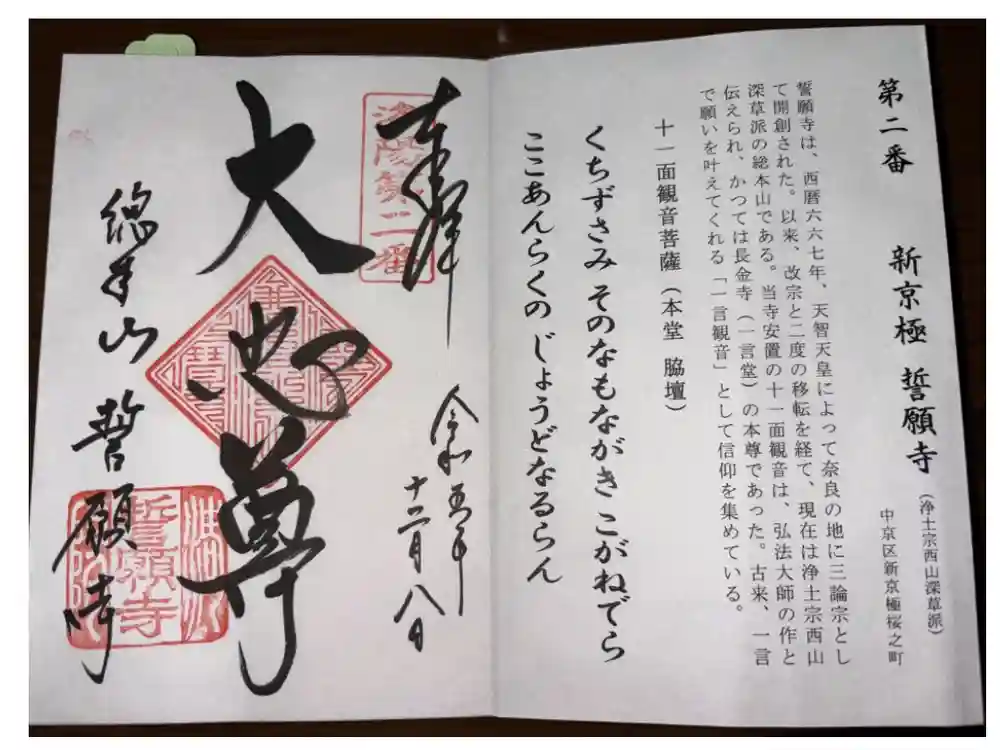 第二番 新京極 誓願寺
（浄土宗西山深草派）
中京区新京極桜之町
誓願寺は、西暦六六七年、天智天皇によって奈良の地に三論宗とし
て開創された。以来、改宗と二度の移転を経て、現在は浄土宗西山
深草派の総本山である。当寺安置の十一面観音は、弘法大師の作と
伝えられ、かつては長金寺（一言堂）の本尊であった。古来、一言
で願いを叶えてくれる「一言観音」として信仰を集めている。
十一面観音菩薩（本堂 脇壇）
くちずさみ そのなもながき こがねでら
ここあんらくの じょうどなるらん
奉拝
洛陽第二番
令和五年
十二月八日
大悲尊
総本山 誓願寺
誓願寺